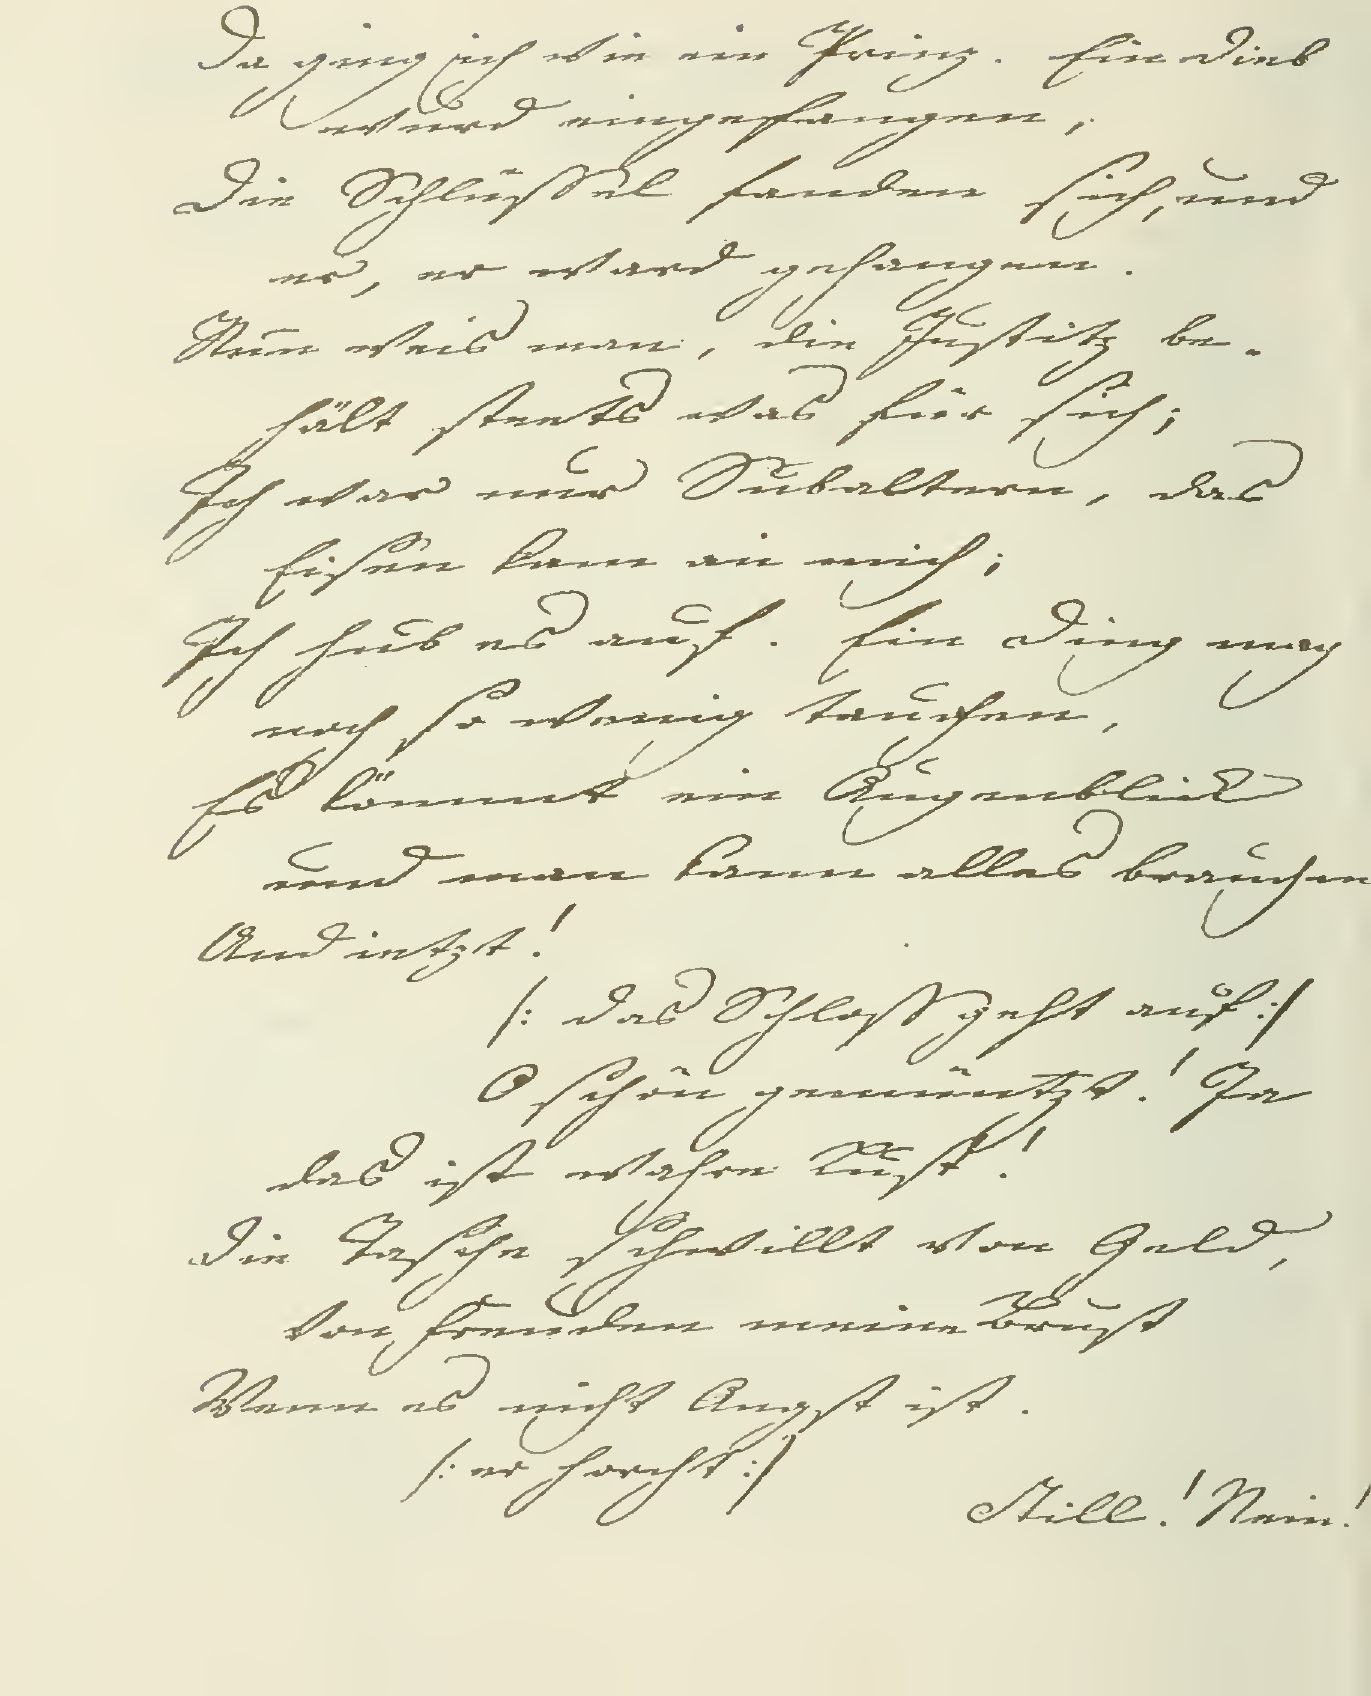 Da ging ich wie ein Prinz. Ein Dieb
wurd eingefangen,
Die Schlüssel fanden sich, und
er, er ward gehangen.
Nun weis man, die Justitz be-
hält steets was für sich;
Ich war nur Subaltern, das
Eisen kam an mich;
Ich hub es auf. Ein Ding mag
noch so wenig taugen,
Es kömmt ein Augenblick
und man kann alles brauchen
Und ietzt!
/: das Schloss geht auf :/
O schön gemüntzt! Ja
das ist wahre Lust!
Die Tasche schwillt von Geld,
von Freuden meine Brust
Wenn es nicht Angst ist.
/: er horcht :/
Still! Nein!